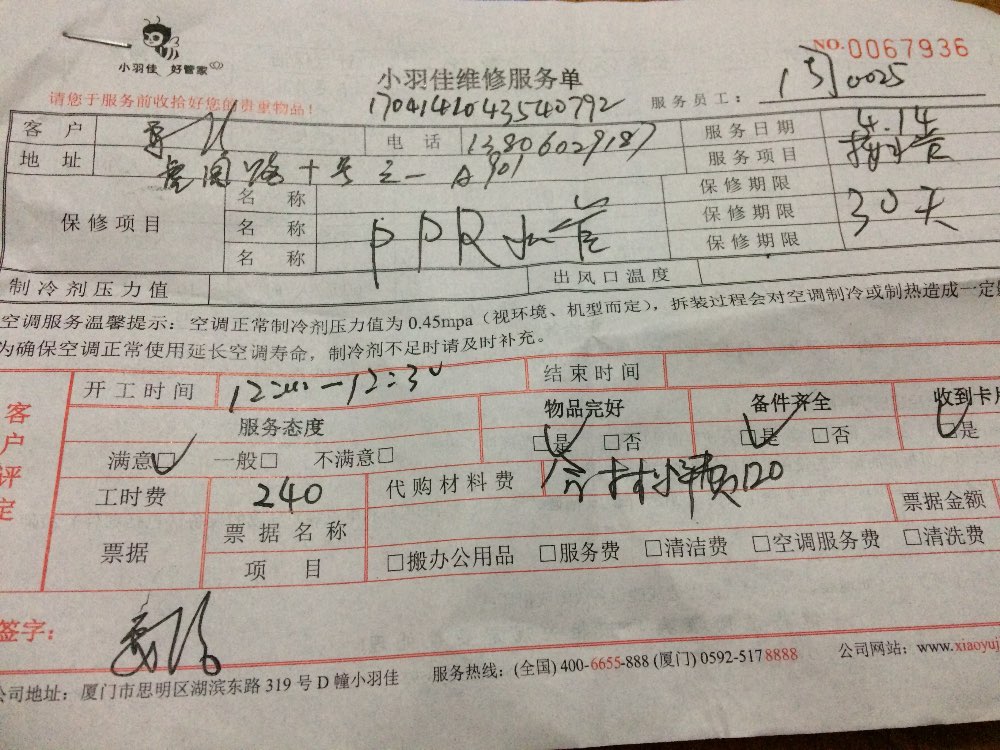 小羽佳 好管家
NO.0067936
小羽佳维修服务单
请您于服务前收拾好您的贵重物品!
1704141043540792
服务员工: 0025
客户
电话 13806029187
服务日期 4.14
地址 十号之一 A901
服务项目
保修项目
名称
名称 PPR水管
名称
保修期限
保修期限 30天
保修期限
制冷剂压力值
出风口温度
空调服务温馨提示: 空调正常制冷剂压力值为 0.45mpa (视环境、机型而定), 拆装过程会对空调制冷或制热造成一定
为确保空调正常使用延长空调寿命, 制冷剂不足时请及时补充。
客户评定
开工时间 12:00—12:30
结束时间
服务态度
物品完好
备件齐全
收到卡片
满意□ 一般□ 不满意□
□是 □否
□是 □否
□是
工时费 240
代购材料费 含材料费120
票据
票据名称
票据金额
项目
□搬办公用品 □服务费 □清洁费 □空调服务费 □清洗费
签字:
公司地址: 厦门市思明区湖滨东路 319 号 D 幢小羽佳
服务热线: (全国) 400-6655-888 (厦门) 0592-5178888
公司网站: www.xiaoyuj